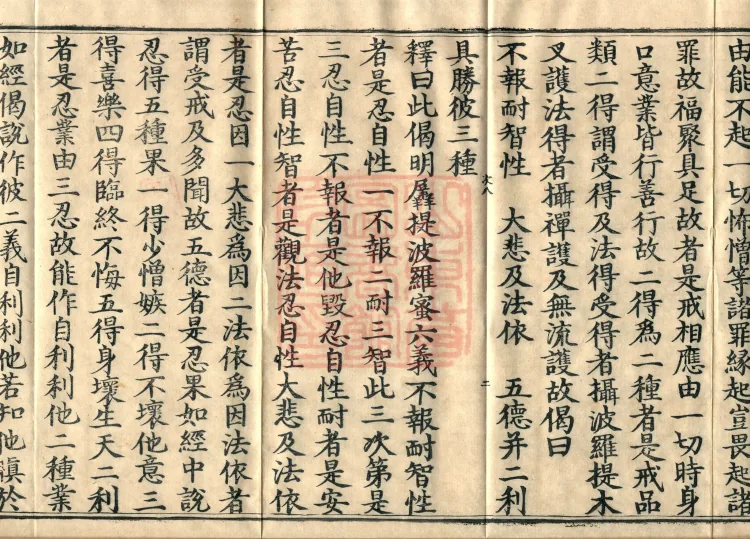 由能不起一切怖憎等諸罪緣起豈畏起諸
罪故福聚具足故者是戒相應由一切時身
口意業皆行善行故二得爲二種者是戒品
類二得謂受得及法得受得者攝波羅提木
叉護法得者攝禪護及無流護故偈曰
不報耐智性　大悲及法依　五德并二利
具勝彼三種
釋曰此偈明羼提波羅蜜六義不報耐智性
者是忍自性一不報二耐三智此三次第是
三忍自性不報者是他毀忍自性耐者是安
苦忍自性智者是觀法忍自性大悲及法依
者是忍因一大悲爲因二法依爲因法依者
謂受戒及多聞故五德者是忍果如經中說
忍得五種果一得少憎嫉二得不壞他意三
得喜樂四得臨終不悔五得身壞生天二利
者是忍業由三忍故能作自利利他二種業
如經偈說作彼二義自利利他若知他瞋於
二